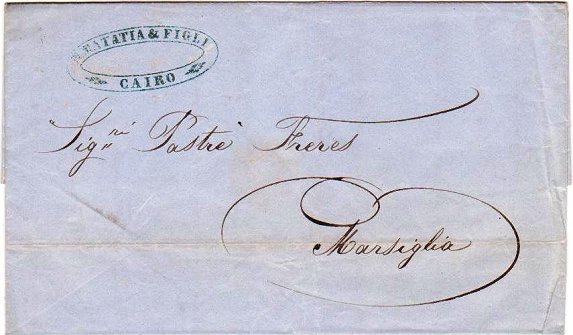 & FIGLI
CAIRO
Sigri Pastré Freres
Marsiglia